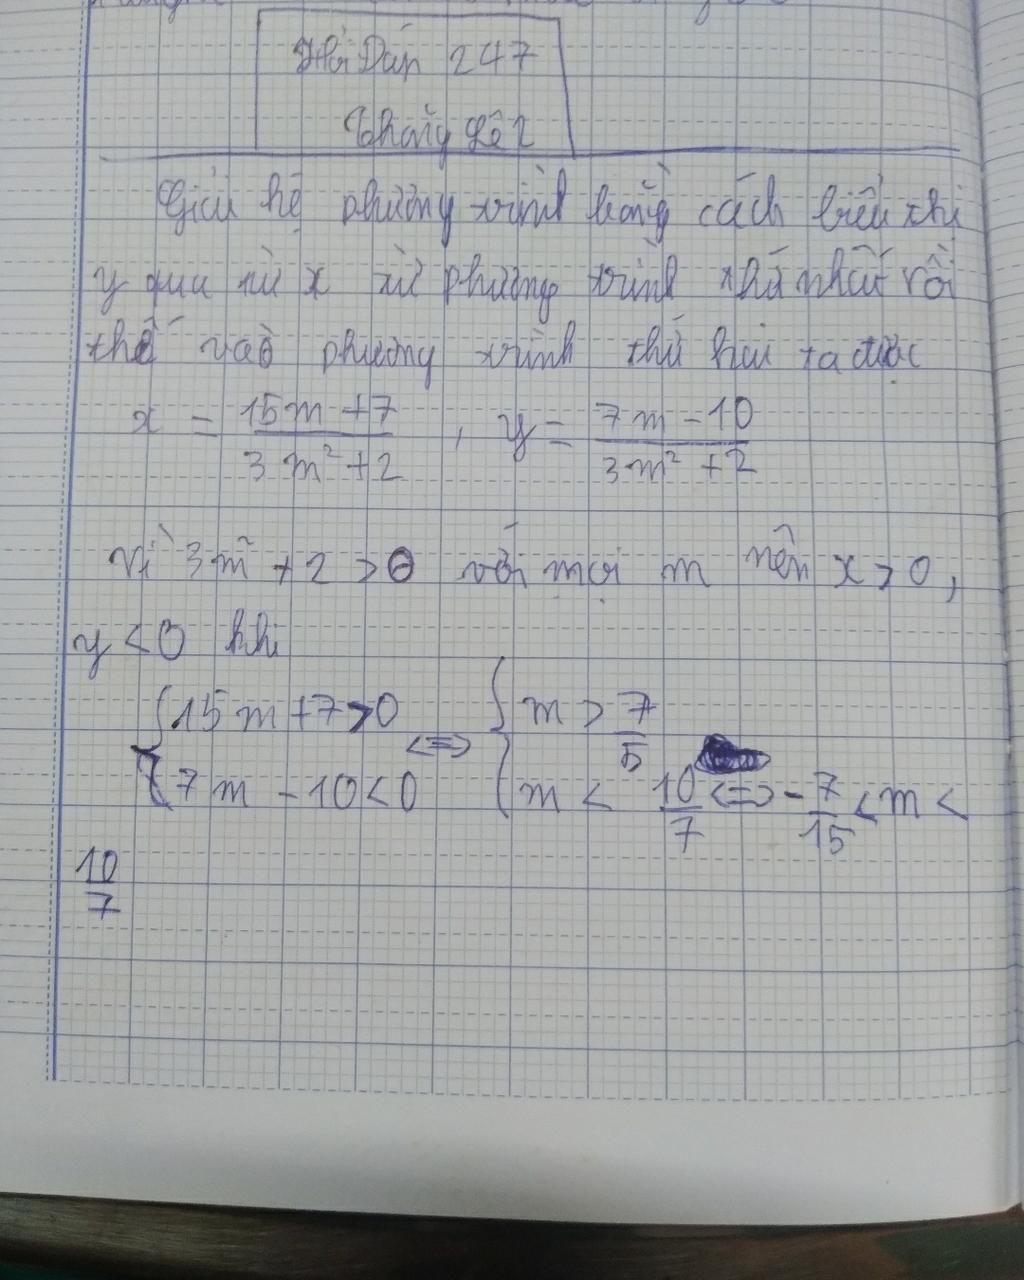 Hỏi Đáp 247
Giải hệ phương trình bằng cách biểu thị
y qua x từ phương trình thứ nhất rồi
thế vào phương trình thứ hai ta được
x = \frac{15m+7}{3m^2+2} , y = \frac{7m-10}{3m^2+2}
Vì 3m^2 + 2 > 0 với mọi m nên x > 0,
y < 0 khi
{15m+7>0 <=> {m > \frac{7}{5}
{7m - 10 < 0 {m < \frac{10}{7} <=> -\frac{7}{15} < m <
\frac{10}{7}